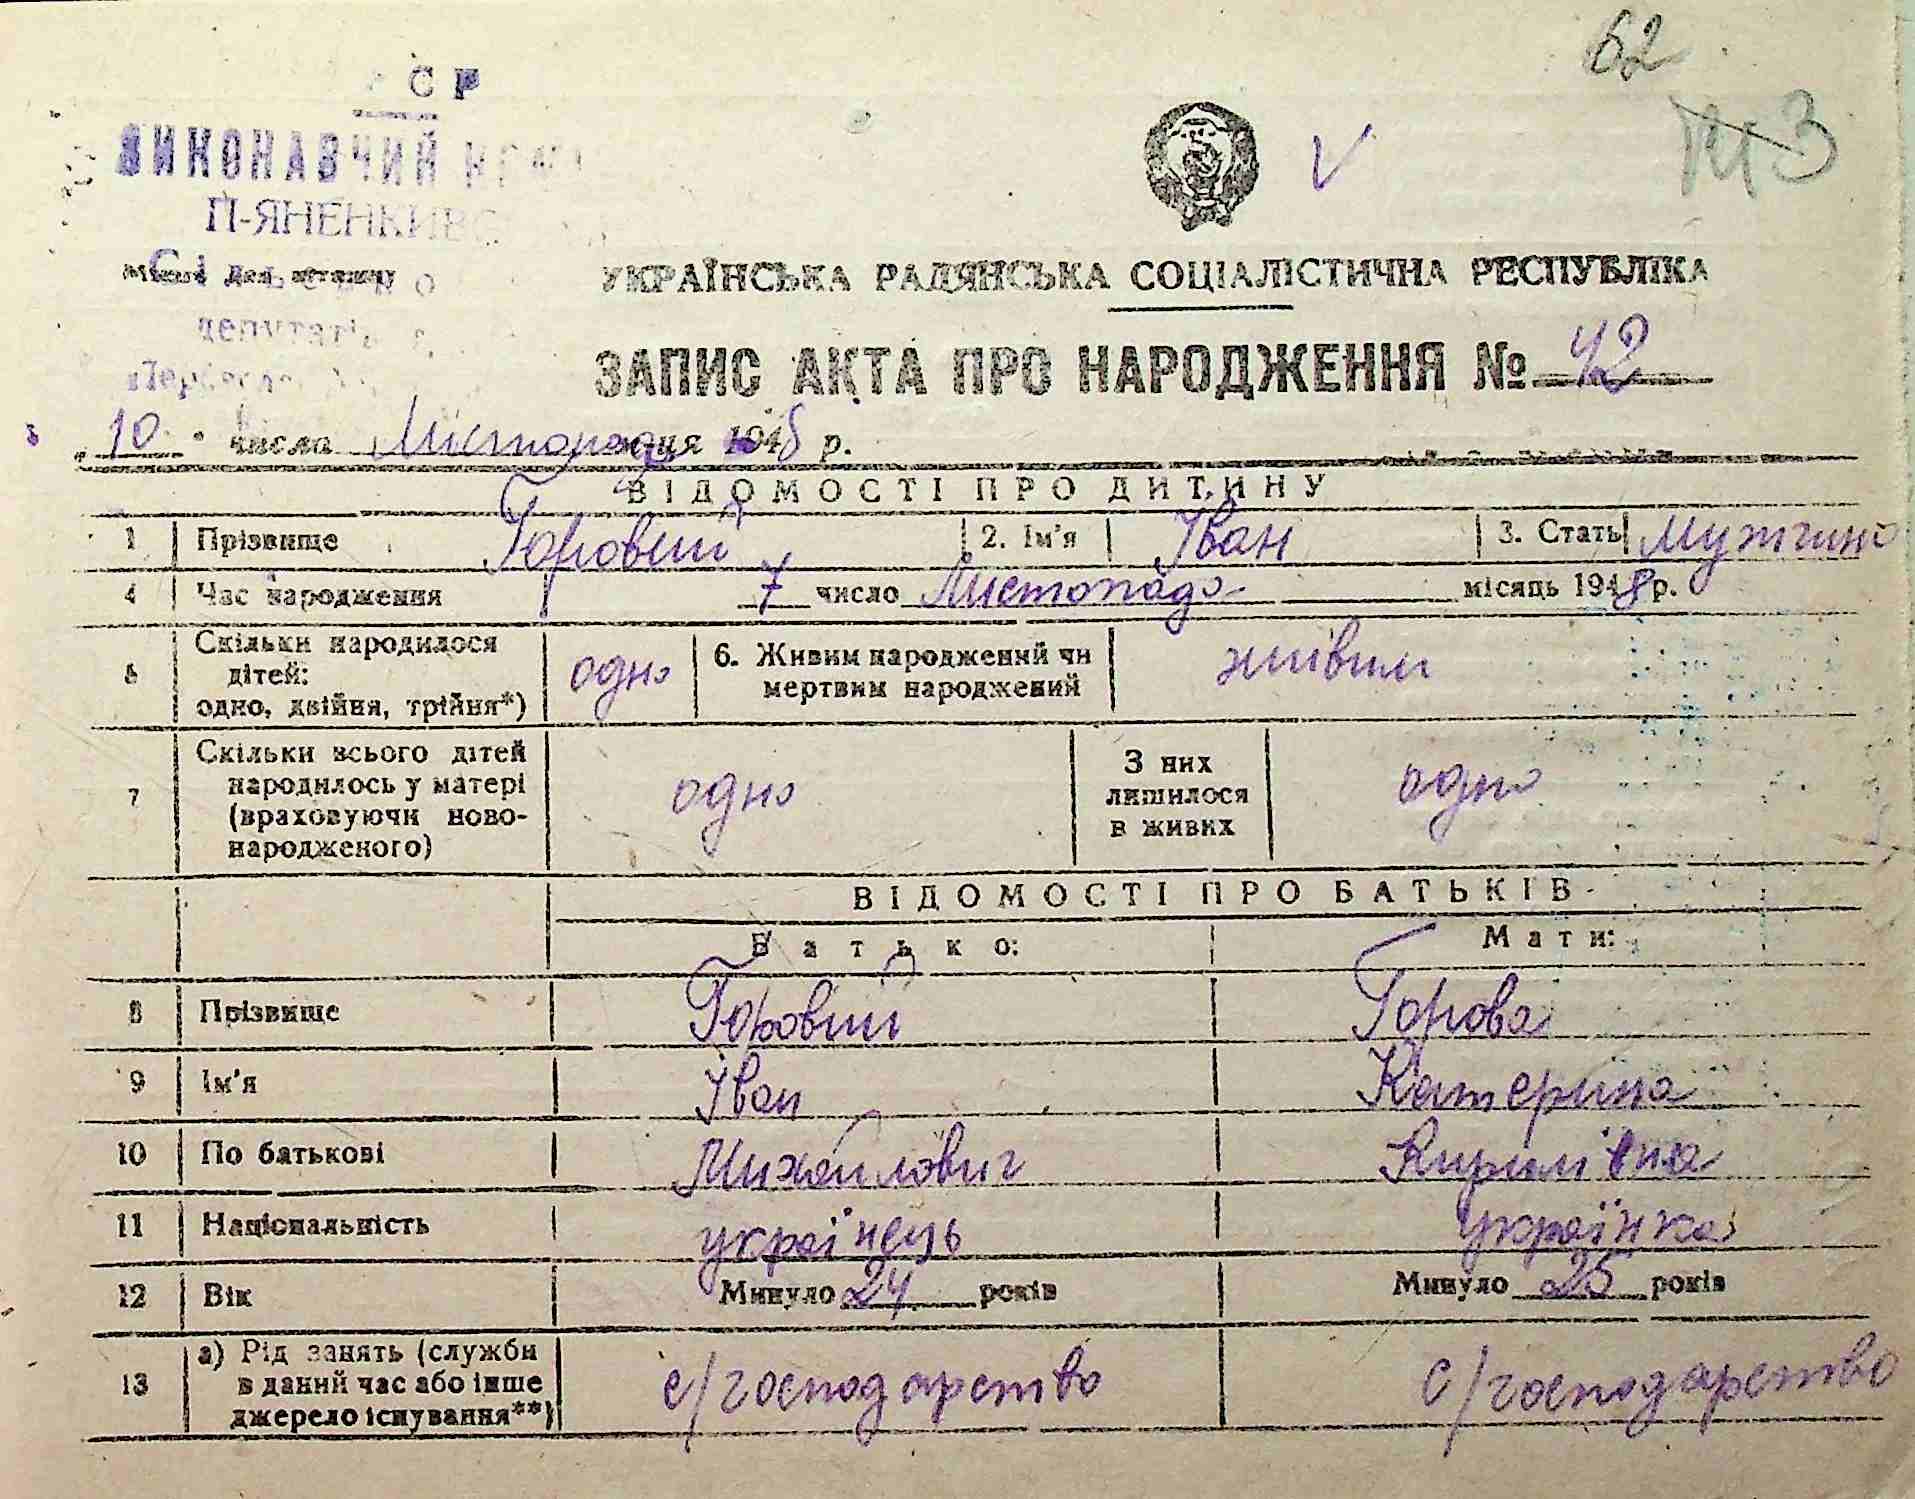 62
СР
ВИКОНАВЧИЙ
М3
П-ЯНЕНКИВС
Місце для штампу
УКРАЇНСЬКА РАДЯНСЬКА СОЦІАЛІСТИЧНА РЕСПУБЛІКА
депутатів
ЗАПИС АКТА ПРО НАРОДЖЕННЯ № 42
„10" числа Листопада м-ця 1948 р.
ВІДОМОСТІ ПРО ДИТИНУ
1 Прізвище Горовий 2. Ім'я Іван 3. Стать Мужчина
4 Час народження 7 число Листопада місяць 1948 р.
5 Скільки народилося дітей: одно, двійня, трійня*) одно 6. Живим народжений чи мертвим народжений живим
7 Скільки всього дітей народилось у матері (враховуючи ново-народженого) одно З них лишилося в живих одно
ВІДОМОСТІ ПРО БАТЬКІВ
Батько: Мати:
8 Прізвище Горовий Горова
9 Ім'я Іван Катерина
10 По батькові Михайлович Кирилівна
11 Національність українець українка
12 Вік Минуло 24 років Минуло 25 років
13 а) Рід занять (служби в даний час або інше джерело існування**) с/господарство с/господарство